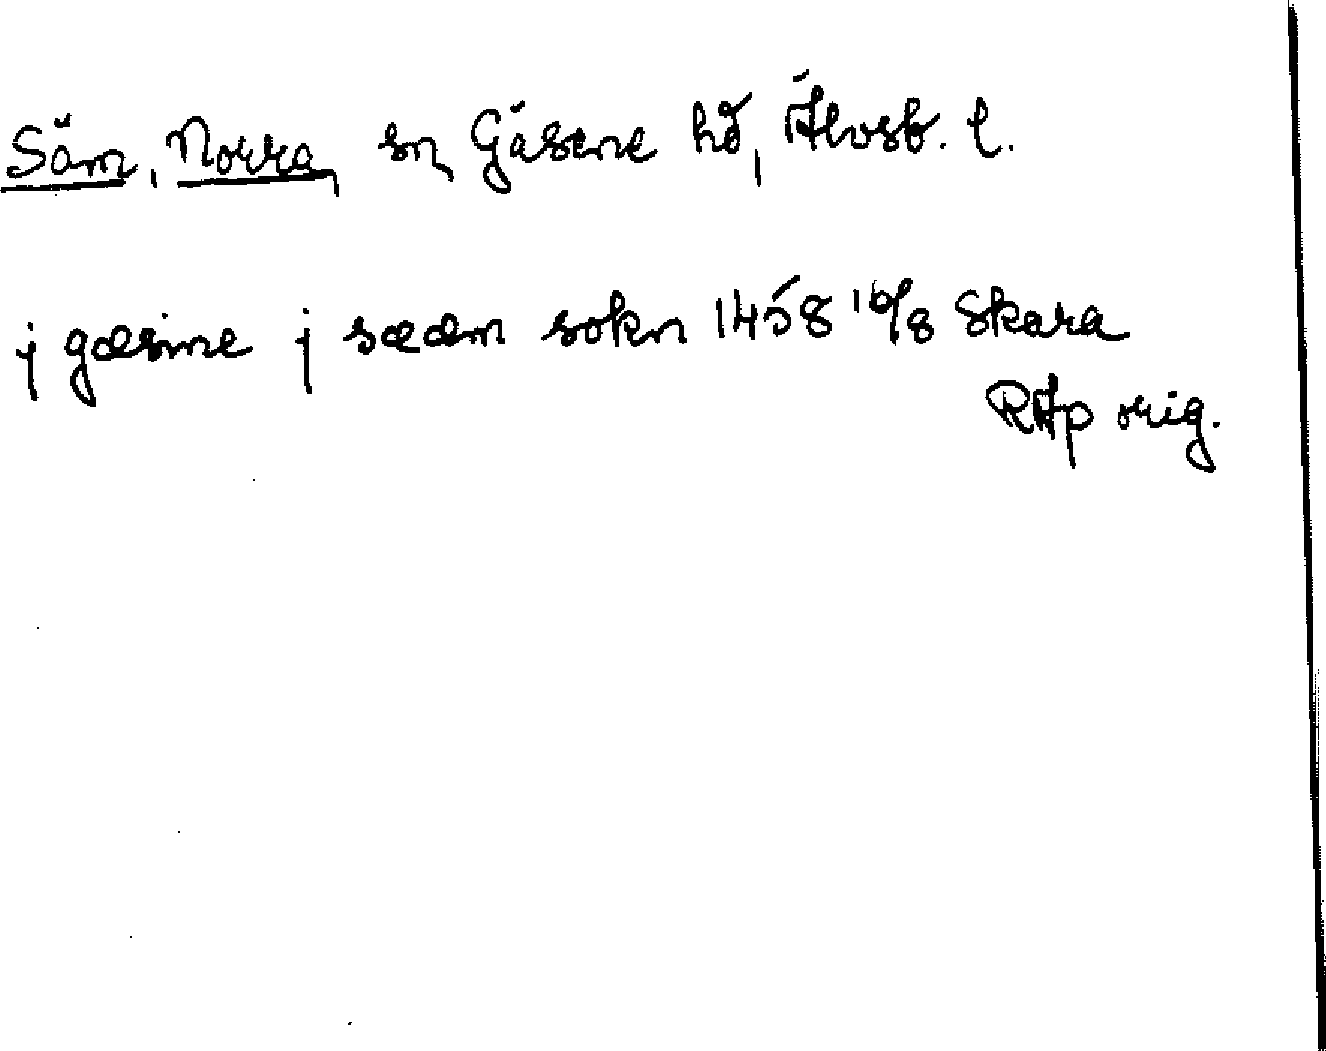 Säm, Norra, sn, Gäsene hd, Älvsb. l.
j gæsine j sææm sokn 1458 16/8 Skara
RAp orig.